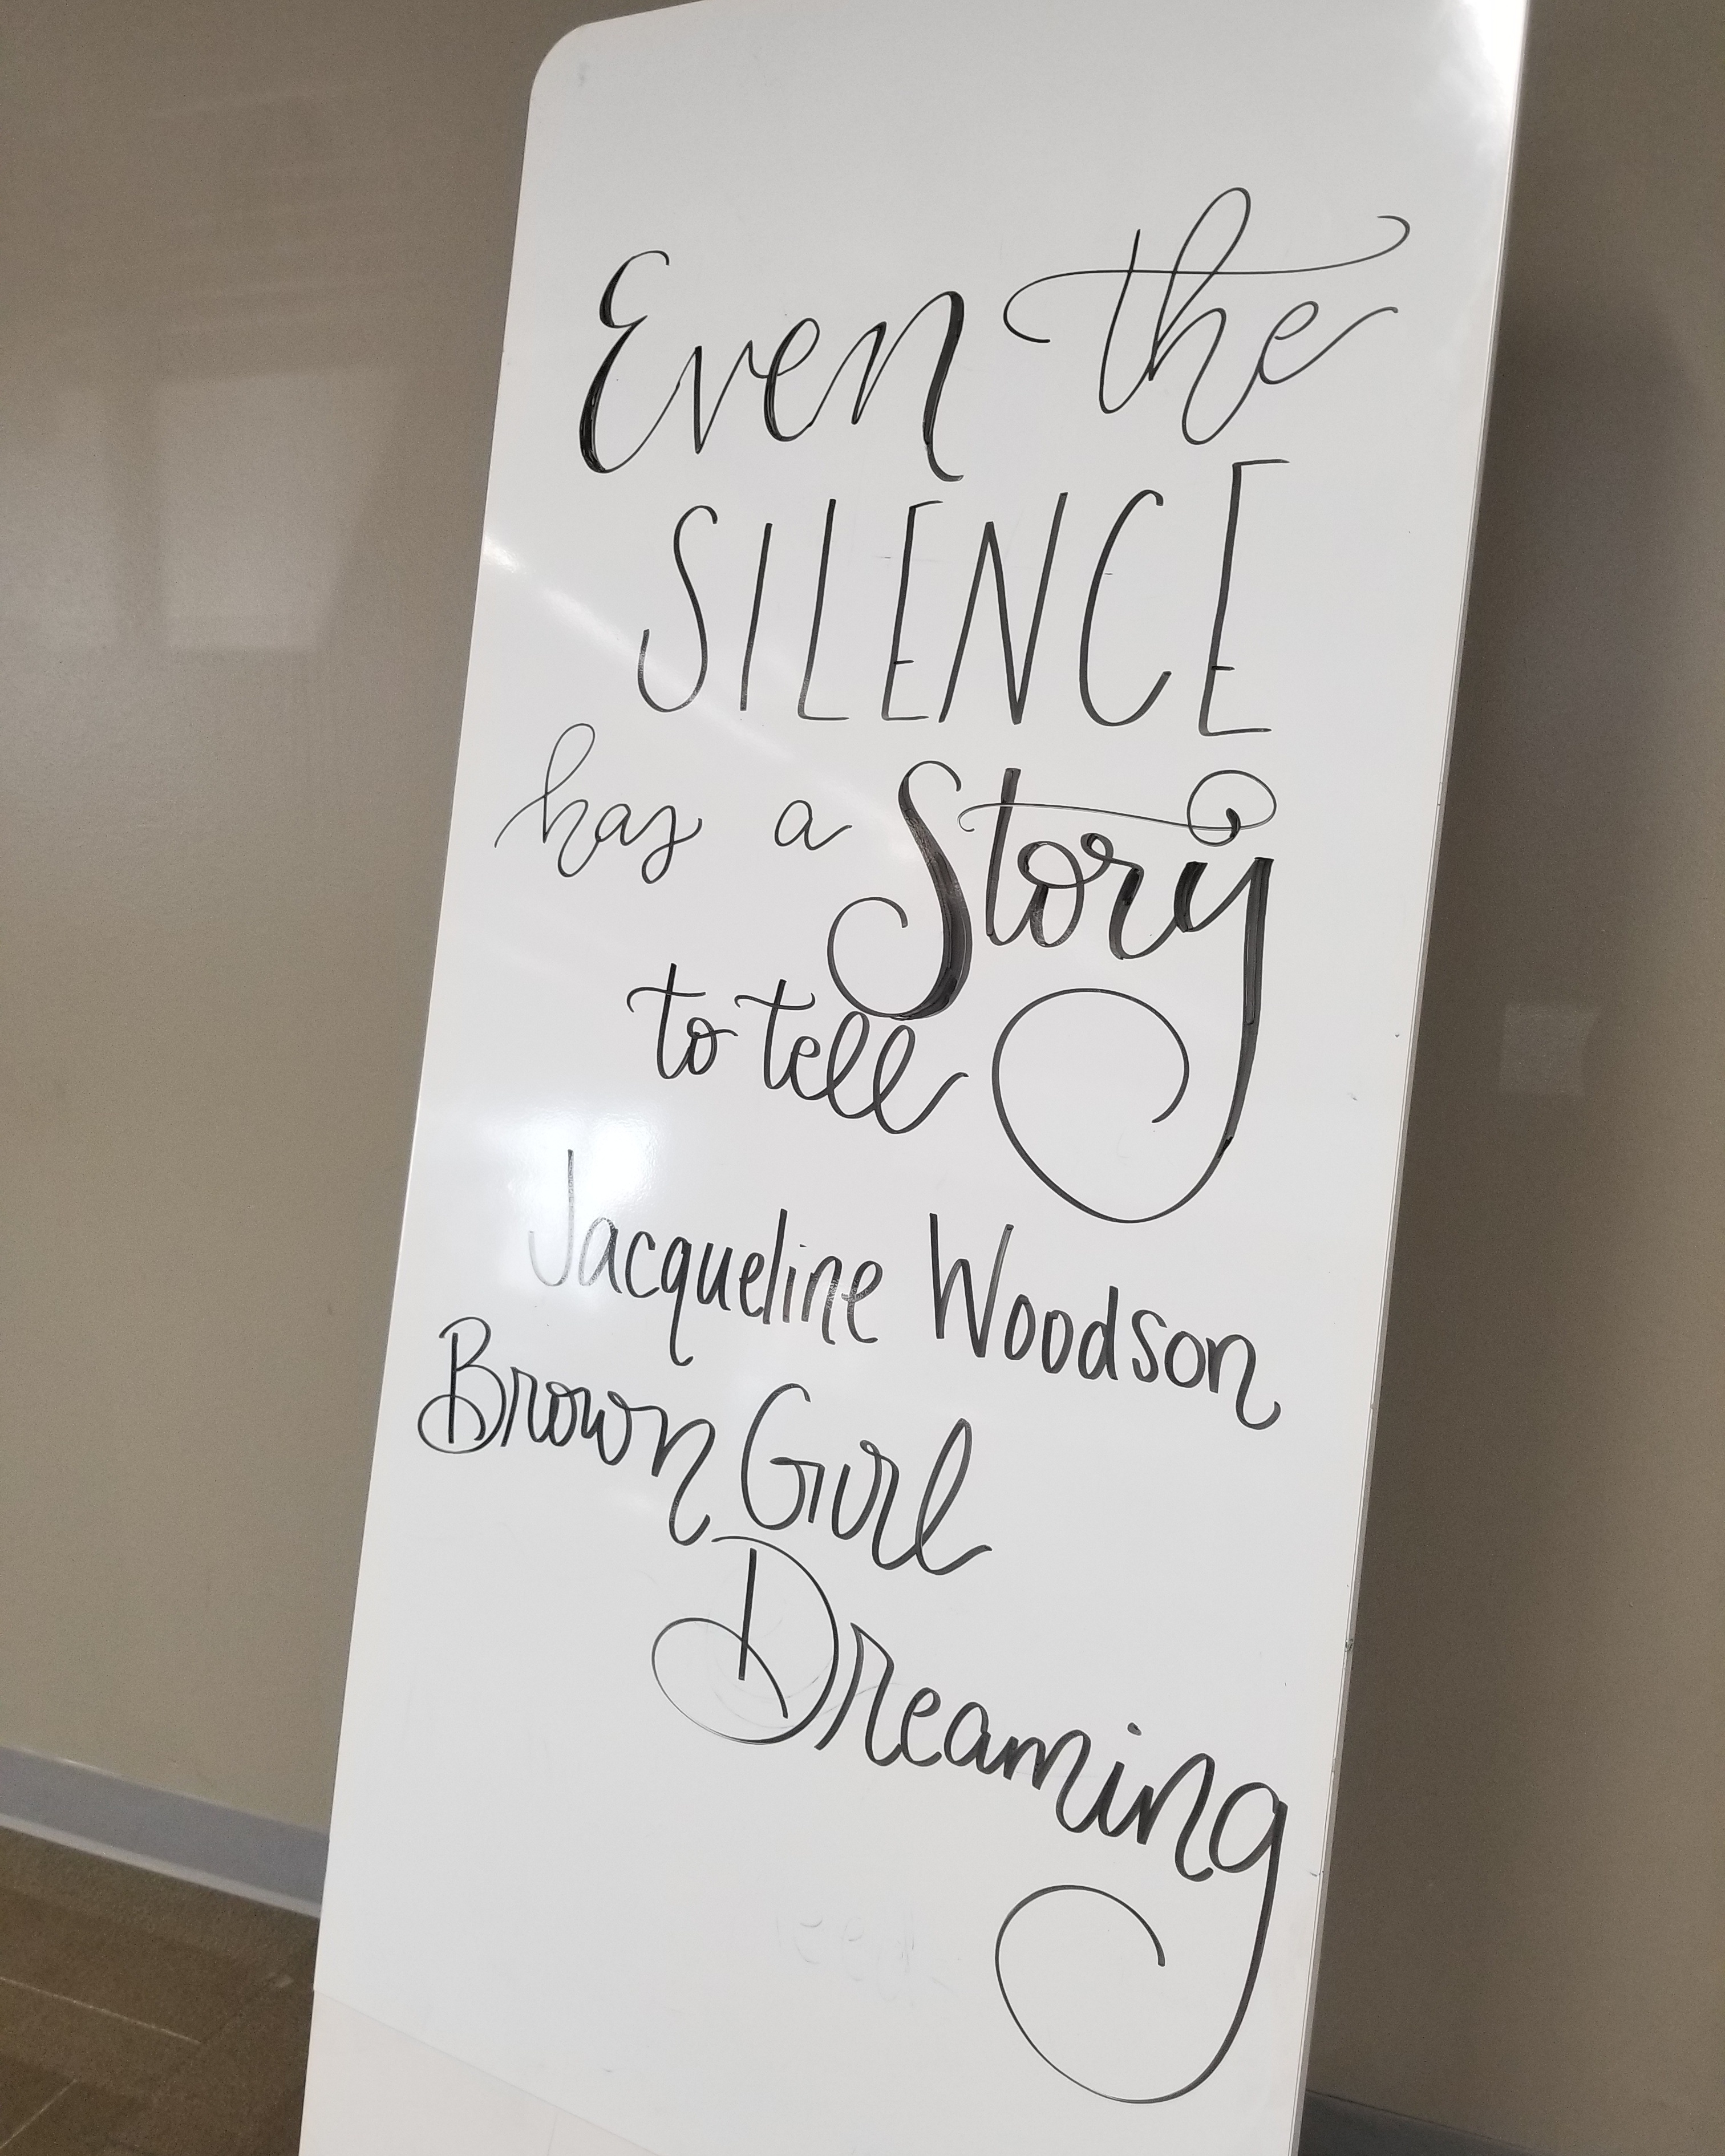 Even the
SILENCE
has a Story
to tell
Jacqueline Woodson
Brown Girl
Dreaming